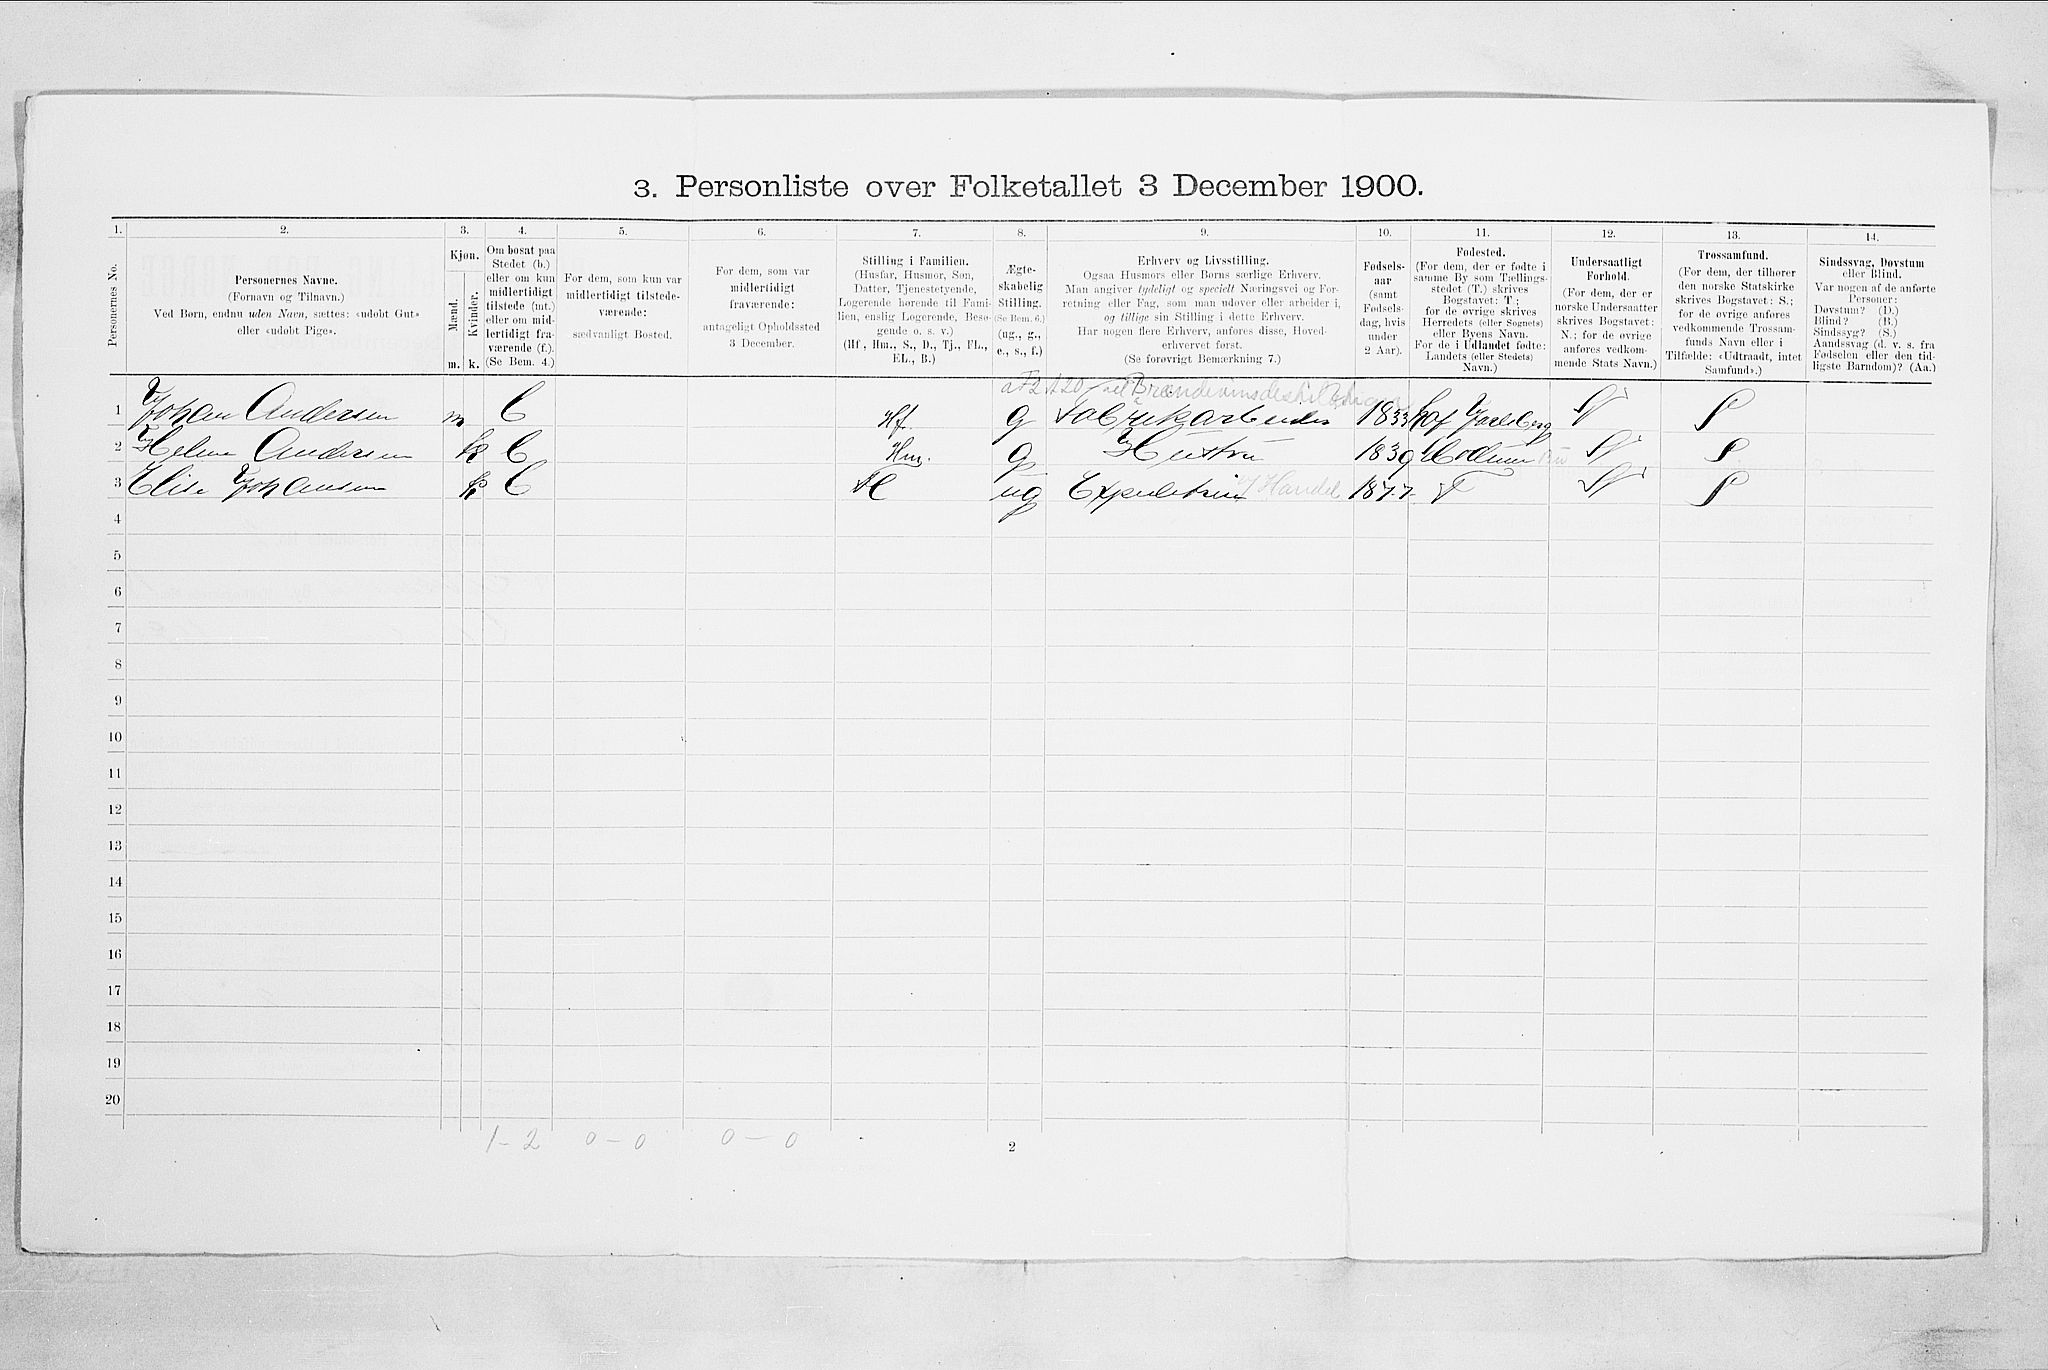 3. Personliste over Folketallet 3 December 1900.
1. 2. 3. 4. 5. 6. 7. 8. 9. 10. 11. 12. 13. 14.
Personernes No.
Personernes Navne.
(Fornavn og Tilnavn.)
Ved Børn, endnu uden Navn, sættes: «udøbt Gut»
eller «udøbt Pige».
Kjøn.
Mænd.
Kvinder.
m. k.
Om bosat paa
Stedet (b.)
eller om kun
midlertidigt
tilstede (mt.)
eller om mid-
lertidigt fra-
værende (f.).
(Se Bem. 4.)
For dem, som kun var
midlertidigt tilstede-
værende:
sædvanligt Bosted.
For dem, som var
midlertidigt
fraværende:
antageligt Opholdssted
3 December.
Stilling i Familien.
(Husfar, Husmor, Søn,
Datter, Tjenestetyende,
Logerende hørende til Fami-
lien, enslig Logerende, Besø-
gende o. s. v.)
(Hf., Hm., S., D., Tj., FL.,
EL., B.)
Ægte-
skabelig
Stilling.
(Se Bem. 6.)
(ug., g.,
e., s., f.)
Erhverv og Livsstilling.
Ogsaa Husmors eller Børns særlige Erhverv.
Man angiver tydeligt og specielt Næringsvei og For-
retning eller Fag, som man udøver eller arbeider i,
og tillige sin Stilling i dette Erhverv.
Har nogen flere Erhverv, anføres disse, Hoved-
erhvervet først.
(Se forøvrigt Bemærkning 7.)
Fødsels-
aar
(samt
Fødsels-
dag, hvis
under
2 Aar).
Fødested.
(For dem, der er fødte i
samme By som Tællings-
stedet (T.) skrives
Bogstavet: T;
for de øvrige skrives
Herredets (eller Sognets)
eller Byens Navn.
For de i Udlandet fødte:
Landets (eller Stedets)
Navn.)
Undersaatligt
Forhold.
(For dem, der er
norske Undersaatter
skrives Bogstavet:
N.; for de øvrige
anføres vedkom-
mende Stats Navn.)
Trossamfund.
(For dem, der tilhører
den norske Statskirke
skrives Bogstavet: S.;
for de øvrige anføres
vedkommende Trossam-
funds Navn eller i
Tilfælde: «Udtraadt, intet
Samfund».)
Sindssvag, Døvstum
eller Blind.
Var nogen af de anførte
Personer:
Døvstum? (D.)
Blind? (B.)
Sindssyg? (S.)
Aandssvag (d. v. s. fra
Fødselen eller den tid-
ligste Barndom)? (Aa.)
1 Johan Andersen m b Hf. g Fabrikarbeider 1833 Hof Jarlsberg N S
2 Helene Andersen k b Hm. g Hustru 1839 Modum N S
3 Elise Johansen k b ug Expeditrice Handel 1877 T N S
4
5
6
7
8
9
10
11
12
13
14
15
16
17
18
19
20
1-2 0-0 0-0
2